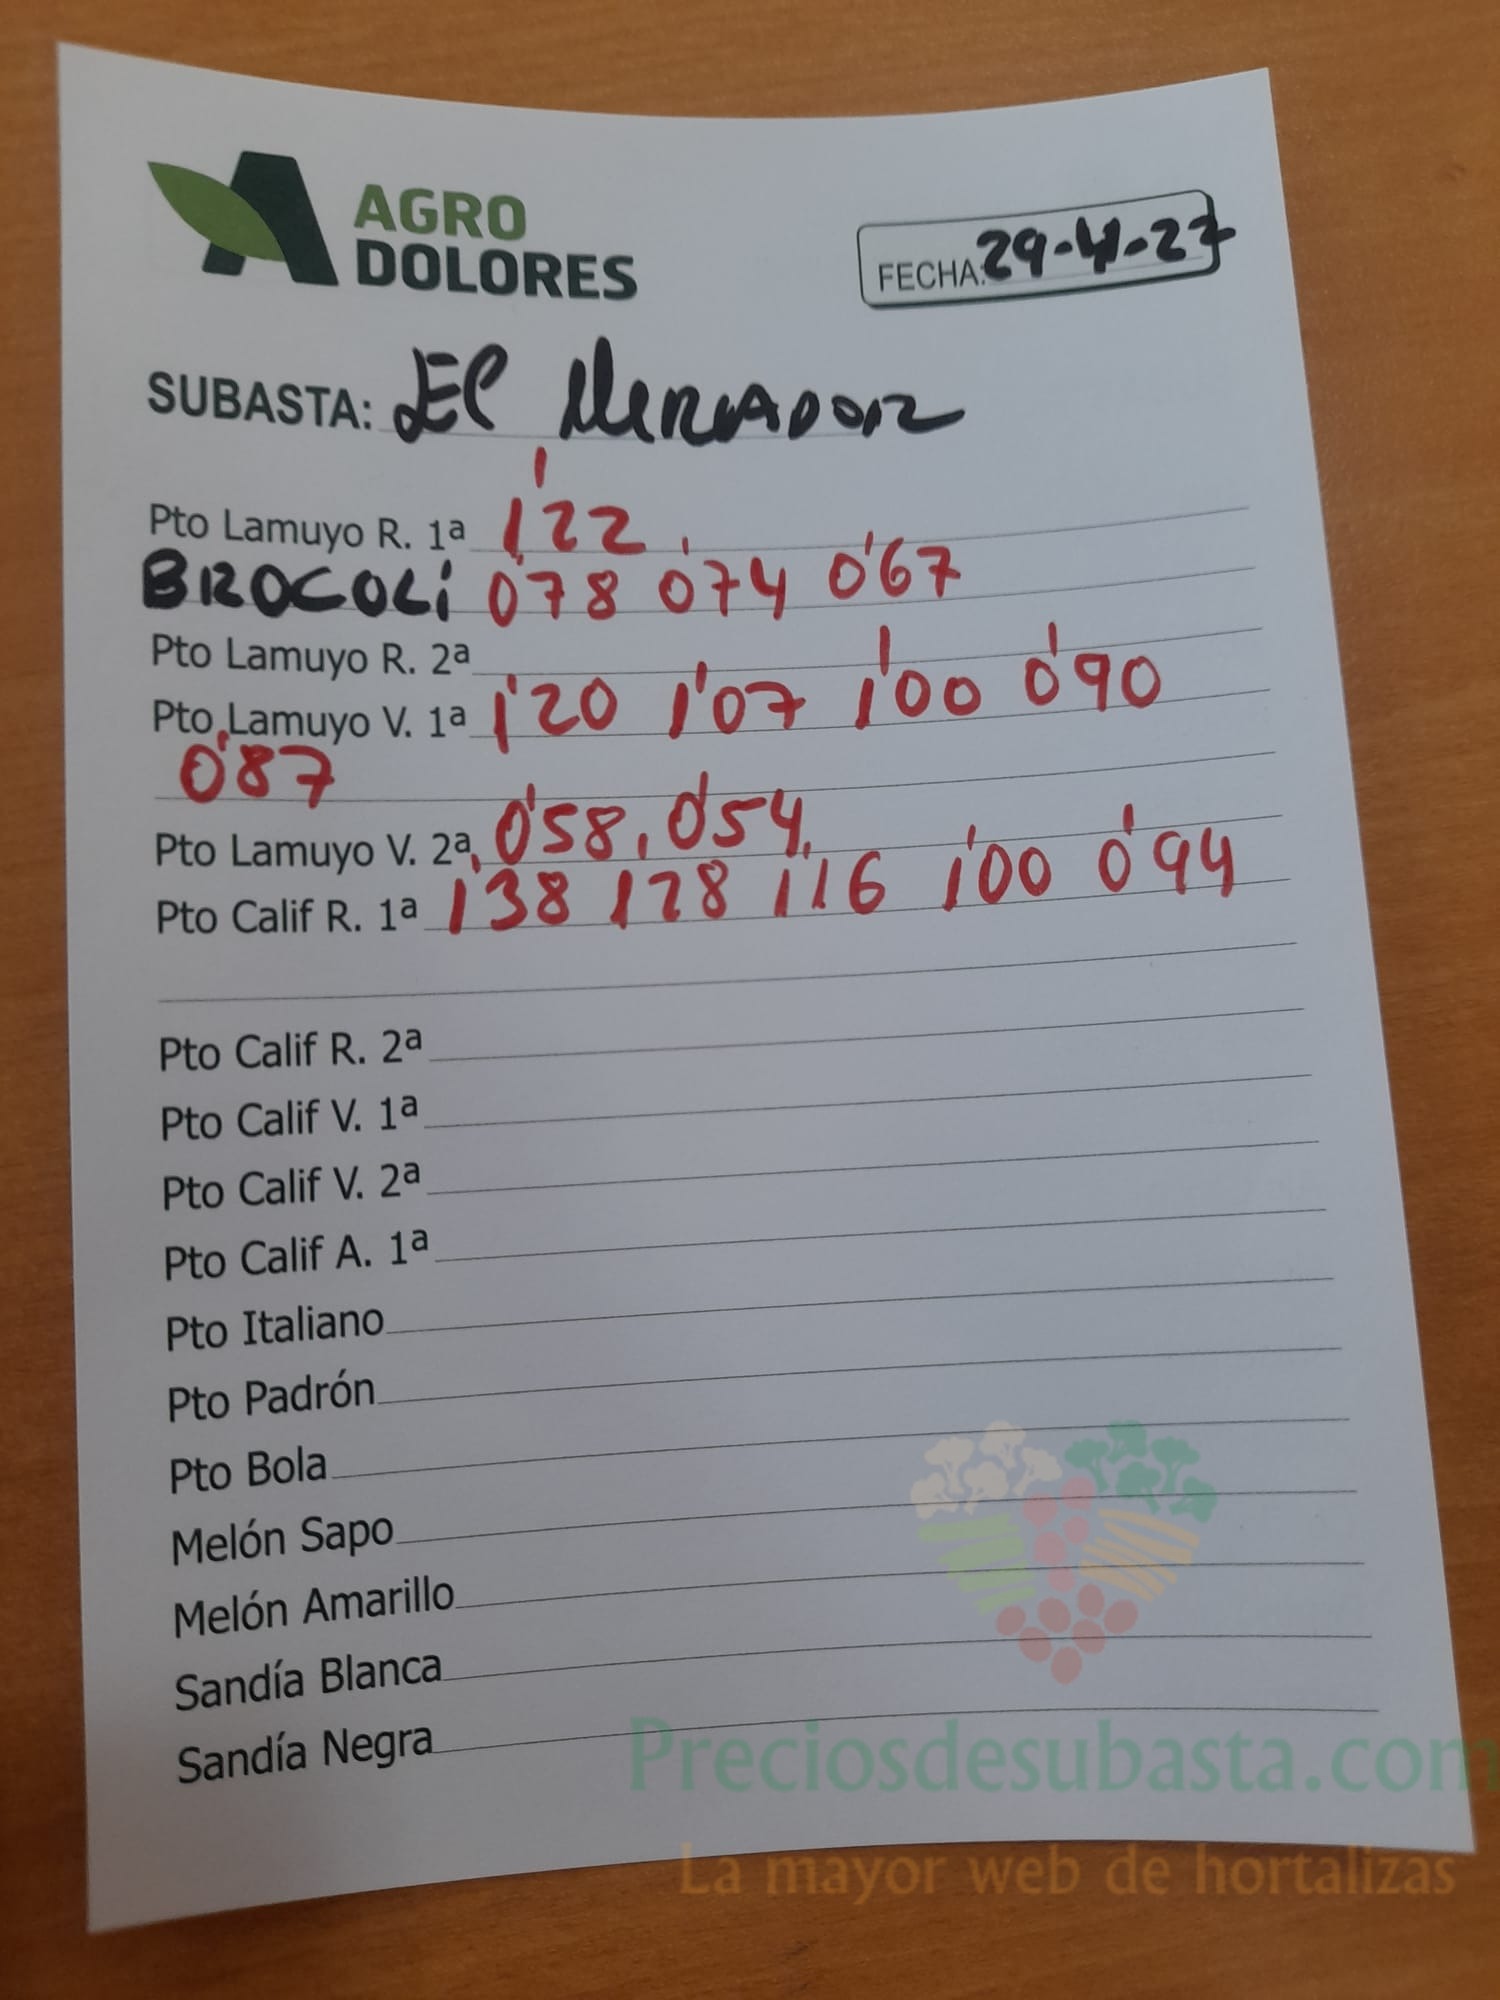 AGRO
DOLORES
FECHA: 29-4-27
SUBASTA: El Mercador
Pto Lamuyo R. 1ª 1'22
BROCOLi 0'78 0'74 0'67
Pto Lamuyo R. 2ª
Pto Lamuyo V. 1ª 1'20 1'07 1'00 0'90
0'87
Pto Lamuyo V. 2ª 0'58, 0'54
Pto Calif R. 1ª 1'38 128 1'16 1'00 0'94
Pto Calif R. 2ª
Pto Calif V. 1ª
Pto Calif V. 2ª
Pto Calif A. 1ª
Pto Italiano
Pto Padrón
Pto Bola
Melón Sapo
Melón Amarillo
Sandía Blanca
Sandía Negra
Preciosdesubasta.com
La mayor web de hortalizas